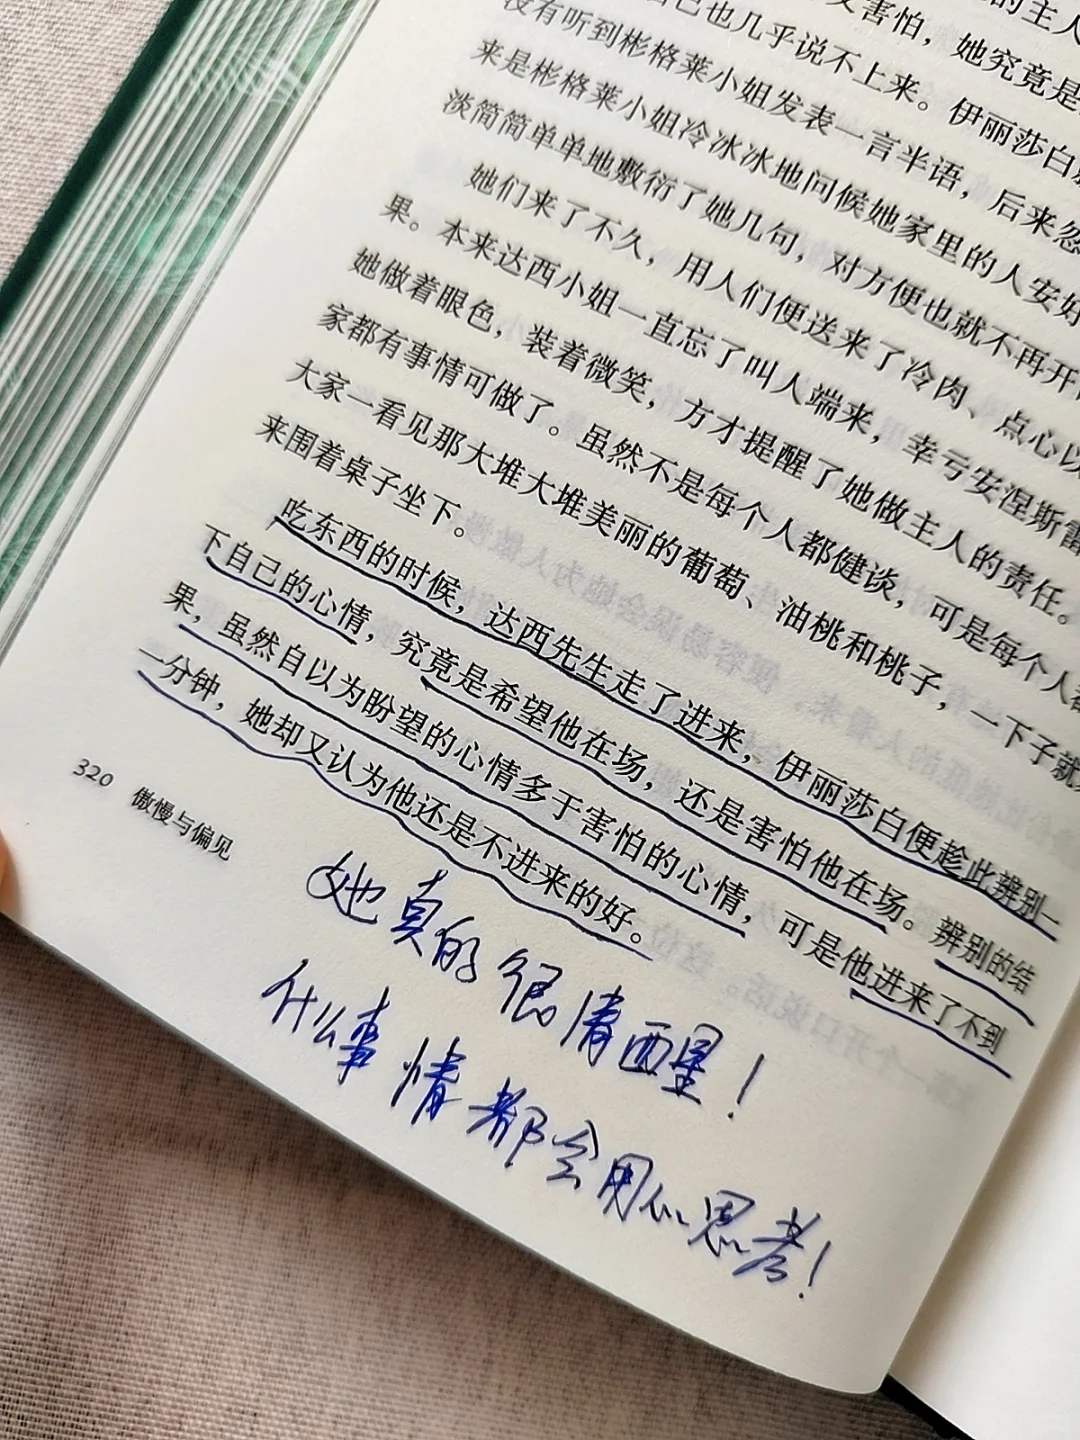 的主人
害怕，她究竟是
己也几乎说不上来。伊丽莎白
没有听到彬格莱小姐发表一言半语，后来忽
来是彬格莱小姐冷冰冰地问候她家里的人安好
淡简简单单地敷衍了她几句，对方便也就不再开
她们来了不久，用人们便送来了冷肉、点心以
果。本来达西小姐一直忘了叫人端来，幸亏安涅斯雷
她做着眼色，装着微笑，方才提醒了她做主人的责任。
家都有事情可做了。虽然不是每个人都健谈，可是每个人都
大家一看见那大堆大堆美丽的葡萄、油桃和桃子，一下子就
来围着桌子坐下。
吃东西的时候，达西先生走了进来，伊丽莎白便趁此辨别一
下自己的心情，究竟是希望他在场，还是害怕他在场。辨别的结
果，虽然自以为盼望的心情多于害怕的心情，可是他进来了不到
一分钟，她却又认为他还是不进来的好。
320 傲慢与偏见
她真的很清醒！
什么事情都会用心思考！